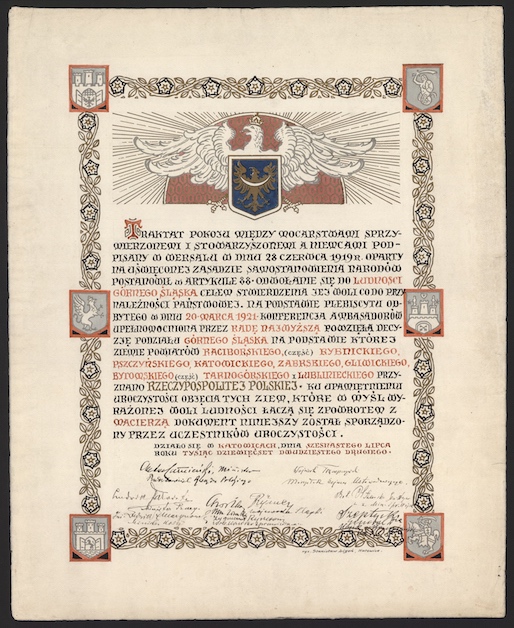 TRAKTAT POKOJU MIĘDZY MOCARSTWAMI SPRZY-
MIERZONEMI I STOWARZYSZONEMI A NIEMCAMI POD-
PISANY W WERSALU W DNIU 28 CZERWCA 1919 R. OPARTY
NA UŚWIĘCONEJ ZASADZIE SAMOSTANOWIENIA NARODÓW
POSTANOWIŁ W ARTYKULE 88 · ODWOŁANIE SIĘ DO LUDNOŚCI
GÓRNEGO ŚLĄSKA CELEM STWIERDZENIA JEJ WOLI CO DO PRZY-
NALEŻNOŚCI PAŃSTWOWEJ. NA PODSTAWIE PLEBISCYTU OD-
BYTEGO W DNIU 20 MARCA 1921 · KONFERENCJA AMBASADORÓW
UPEŁNOMOCNIONA PRZEZ RADĘ NAJWYŻSZĄ POWZIĘŁA DECY-
ZJĘ PODZIAŁU GÓRNEGO ŚLĄSKA NA PODSTAWIE KTÓREJ
ZIEMIE POWIATÓW RACIBORSKIEGO, (CZĘŚĆ) RYBNICKIEGO,
PSZCZYŃSKIEGO, KATOWICKIEGO, ZABRSKIEGO, GLIWICKIEGO,
BYTOMSKIEGO (CZĘŚĆ) TARNOGÓRSKIEGO I LUBLINIECKIEGO PRZY-
ZNANO RZECZYPOSPOLITEJ POLSKIEJ · KU UPAMIĘTNIENIU
UROCZYSTOŚCI OBJĘCIA TYCH ZIEM, KTÓRE W MYŚL WY-
RAŻONEJ WOLI LUDNOŚCI ŁĄCZĄ SIĘ ZPOWROTEM Z
MACIERZĄ DOKUMENT NINIEJSZY ZOSTAŁ SPORZĄDZO-
NY PRZEZ UCZESTNIKÓW UROCZYSTOŚCI.
DZIAŁO SIĘ W KATOWICACH, DNIA SZESNASTEGO LIPCA
ROKU TYSIĄC DZIEWIĘĆSET DWUDZIESTEGO DRUGIEGO.